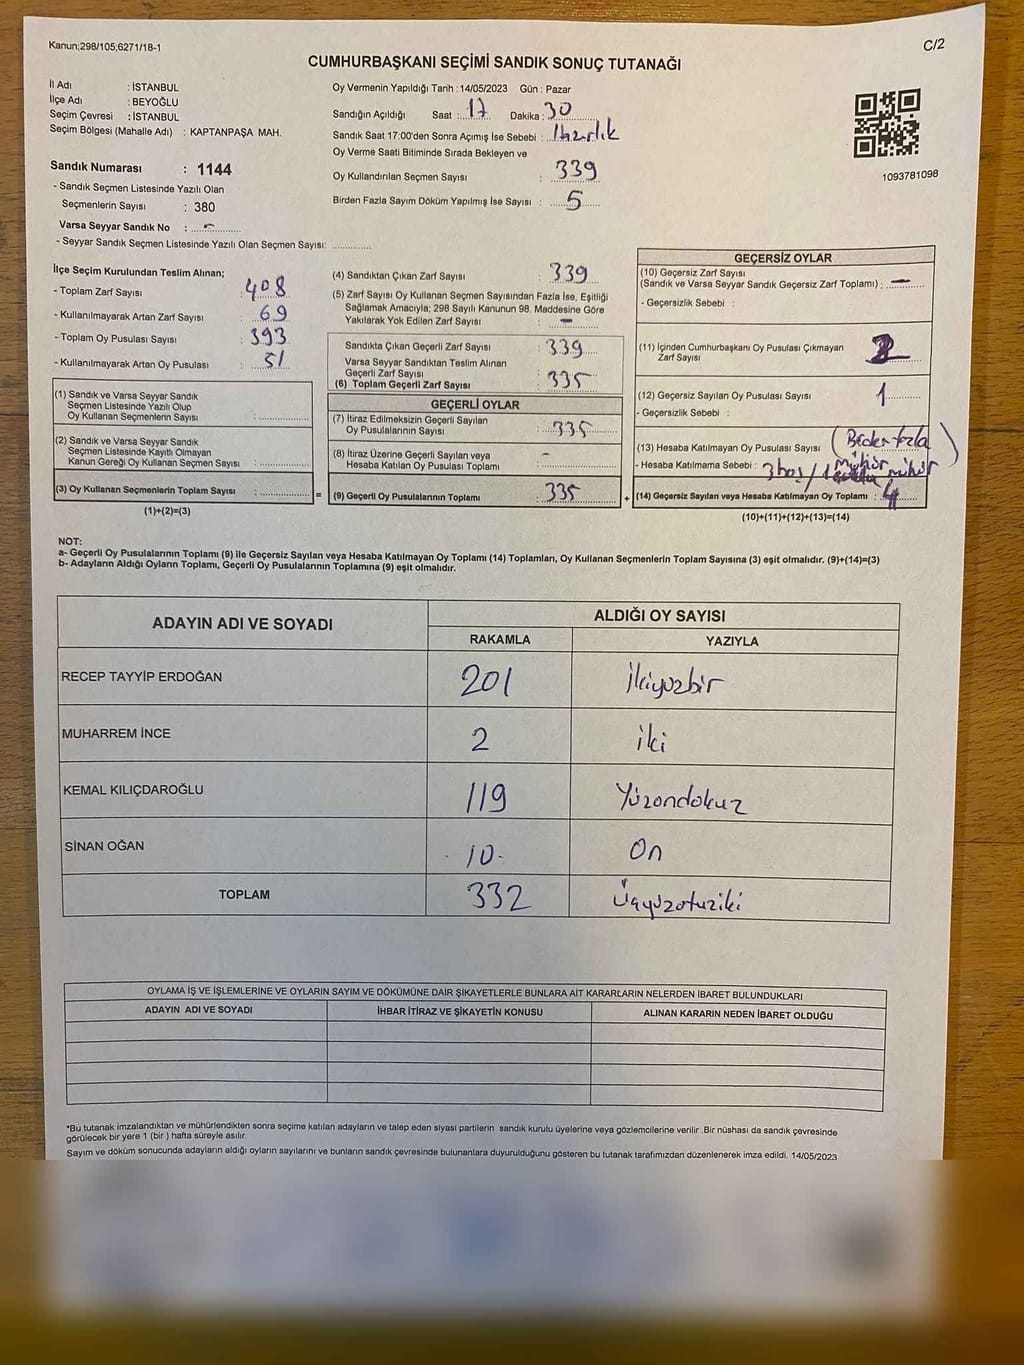 Kanun;298/105,6271/18-1
C/2
CUMHURBAŞKANI SEÇİMİ SANDIK SONUÇ TUTANAĞI
İl Adı : İSTANBUL
İlçe Adı : BEYOĞLU
Seçim Çevresi : İSTANBUL
Seçim Bölgesi (Mahalle Adı) : KAPTANPAŞA MAH.
Sandık Numarası : 1144
- Sandık Seçmen Listesinde Yazılı Olan
Seçmenlerin Sayısı : 380
Varsa Seyyar Sandık No : -
- Seyyar Sandık Seçmen Listesinde Yazılı Olan Seçmen Sayısı: ............
Oy Vermenin Yapıldığı Tarih :14/05/2023 Gün : Pazar
Sandığın Açıldığı Saat : 17 Dakika : 30
Sandık Saat 17:00'den Sonra Açımış İse Sebebi : Hazırlık
Oy Verme Saati Bitiminde Sırada Bekleyen ve
Oy Kullandırılan Seçmen Sayısı : 339
Birden Fazla Sayım Döküm Yapılmış İse Sayısı : 5
1093781098
İlçe Seçim Kurulundan Teslim Alınan;
- Toplam Zarf Sayısı : 408
- Kullanılmayarak Artan Zarf Sayısı : 69
- Toplam Oy Pusulası Sayısı : 393
- Kullanılmayarak Artan Oy Pusulası : 51
(1) Sandık ve Varsa Seyyar Sandık
Seçmen Listesinde Yazılı Olup
Oy Kullanan Seçmenlerin Sayısı :
(2) Sandık ve Varsa Seyyar Sandık
Seçmen Listesinde Kayıtlı Olmayan
Kanun Gereği Oy Kullanan Seçmen Sayısı :
(3) Oy Kullanan Seçmenlerin Toplam Sayısı : =
(1)+(2)=(3)
(4) Sandıktan Çıkan Zarf Sayısı : 339
(5) Zarf Sayısı Oy Kullanan Seçmen Sayısından Fazla İse, Eşitliği
Sağlamak Amacıyla; 298 Sayılı Kanunun 98. Maddesine Göre
Yakılarak Yok Edilen Zarf Sayısı : -
Sandıkta Çıkan Geçerli Zarf Sayısı : 339
Varsa Seyyar Sandıktan Teslim Alınan
Geçerli Zarf Sayısı
(6) Toplam Geçerli Zarf Sayısı : 335
GEÇERLİ OYLAR
(7) İtiraz Edilmeksizin Geçerli Sayılan
Oy Pusulalarının Sayısı : 335
(8) İtiraz Üzerine Geçerli Sayılan veya
Hesaba Katılan Oy Pusulaları Toplamı : -
(9) Geçerli Oy Pusulalarının Toplamı : 335 +
GEÇERSİZ OYLAR
(10) Geçersiz Zarf Sayısı
(Sandık ve Varsa Seyyar Sandık Geçersiz Zarf Toplamı) : -
- Geçersizlik Sebebi :
(11) İçinden Cumhurbaşkanı Oy Pusulası Çıkmayan
Zarf Sayısı
(12) Geçersiz Sayılan Oy Pusulası Sayısı : 1
- Geçersizlik Sebebi :
(13) Hesaba Katılmayan Oy Pusulası Sayısı (Birden fazla
- Hesaba Katılmama Sebebi : 3 boş / 1 mühür)
(14) Geçersiz Sayılan veya Hesaba Katılmayan Oy Toplamı : 4
(10)+(11)+(12)+(13)=(14)
NOT:
a- Geçerli Oy Pusulalarının Toplamı (9) ile Geçersiz Sayılan veya Hesaba Katılmayan Oy Toplamı (14) Toplamları, Oy Kullanan Seçmenlerin Toplam Sayısına (3) eşit olmalıdır. (9)+(14)=(3)
b- Adayların Aldığı Oyların Toplamı, Geçerli Oy Pusulalarının Toplamına (9) eşit olmalıdır.
ADAYIN ADI VE SOYADI
ALDIĞI OY SAYISI
RAKAMLA YAZIYLA
RECEP TAYYİP ERDOĞAN 201 İkiyüzbir
MUHARREM İNCE 2 iki
KEMAL KILIÇDAROĞLU 119 Yüzondokuz
SİNAN OĞAN 10 On
TOPLAM 332 Üçyüzotuziki
OYLAMA İŞ VE İŞLEMLERİNE VE OYLARIN SAYIM VE DÖKÜMÜNE DAİR ŞİKAYETLERLE BUNLARA AİT KARARLARIN NELERDEN İBARET BULUNDUKLARI
ADAYIN ADI VE SOYADI İHBAR İTİRAZ VE ŞİKAYETİN KONUSU ALINAN KARARIN NEDEN İBARET OLDUĞU
*Bu tutanak imzalandıktan ve mühürlendikten sonra seçime katılan adayların ve talep eden siyasi partilerin sandık kurulu üyelerine veya gözlemcilerine verilir .Bir nüshası da sandık çevresinde
görülecek bir yere 1 (bir ) hafta süreyle asılır.
Sayım ve döküm sonucunda adayların aldığı oyların sayılarını ve bunların sandık çevresinde bulunanlara duyurulduğunu gösteren bu tutanak tarafımızdan düzenlenerek imza edildi. 14/05/2023